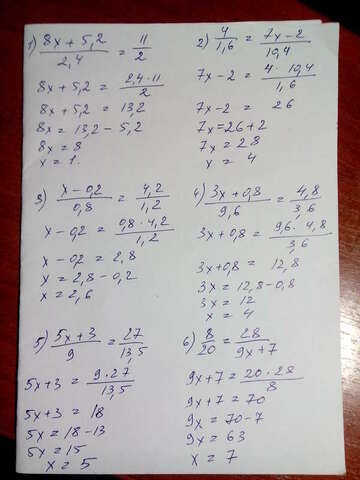 1) (8x + 5,2)/2,4 = 11/2
8x + 5,2 = (2,4 · 11)/2
8x + 5,2 = 13,2
8x = 13,2 - 5,2
8x = 8
x = 1.
2) 4/1,6 = (7x - 2)/10,4
7x - 2 = (4 · 10,4)/1,6
7x - 2 = 26
7x = 26 + 2
7x = 28
x = 4
3) (x - 0,2)/0,8 = 4,2/1,2
x - 0,2 = (0,8 · 4,2)/1,2
x - 0,2 = 2,8
x = 2,8 - 0,2
x = 2,6
4) (3x + 0,8)/9,6 = 4,8/3,6
3x + 0,8 = (9,6 · 4,8)/3,6
3x + 0,8 = 12,8
3x = 12,8 - 0,8
3x = 12
x = 4
5) (5x + 3)/9 = 27/13,5
5x + 3 = (9 · 27)/13,5
5x + 3 = 18
5x = 18 - 13
5x = 15
x = 5
6) 8/20 = 28/(9x + 7)
9x + 7 = (20 · 28)/8
9x + 7 = 70
9x = 70 - 7
9x = 63
x = 7